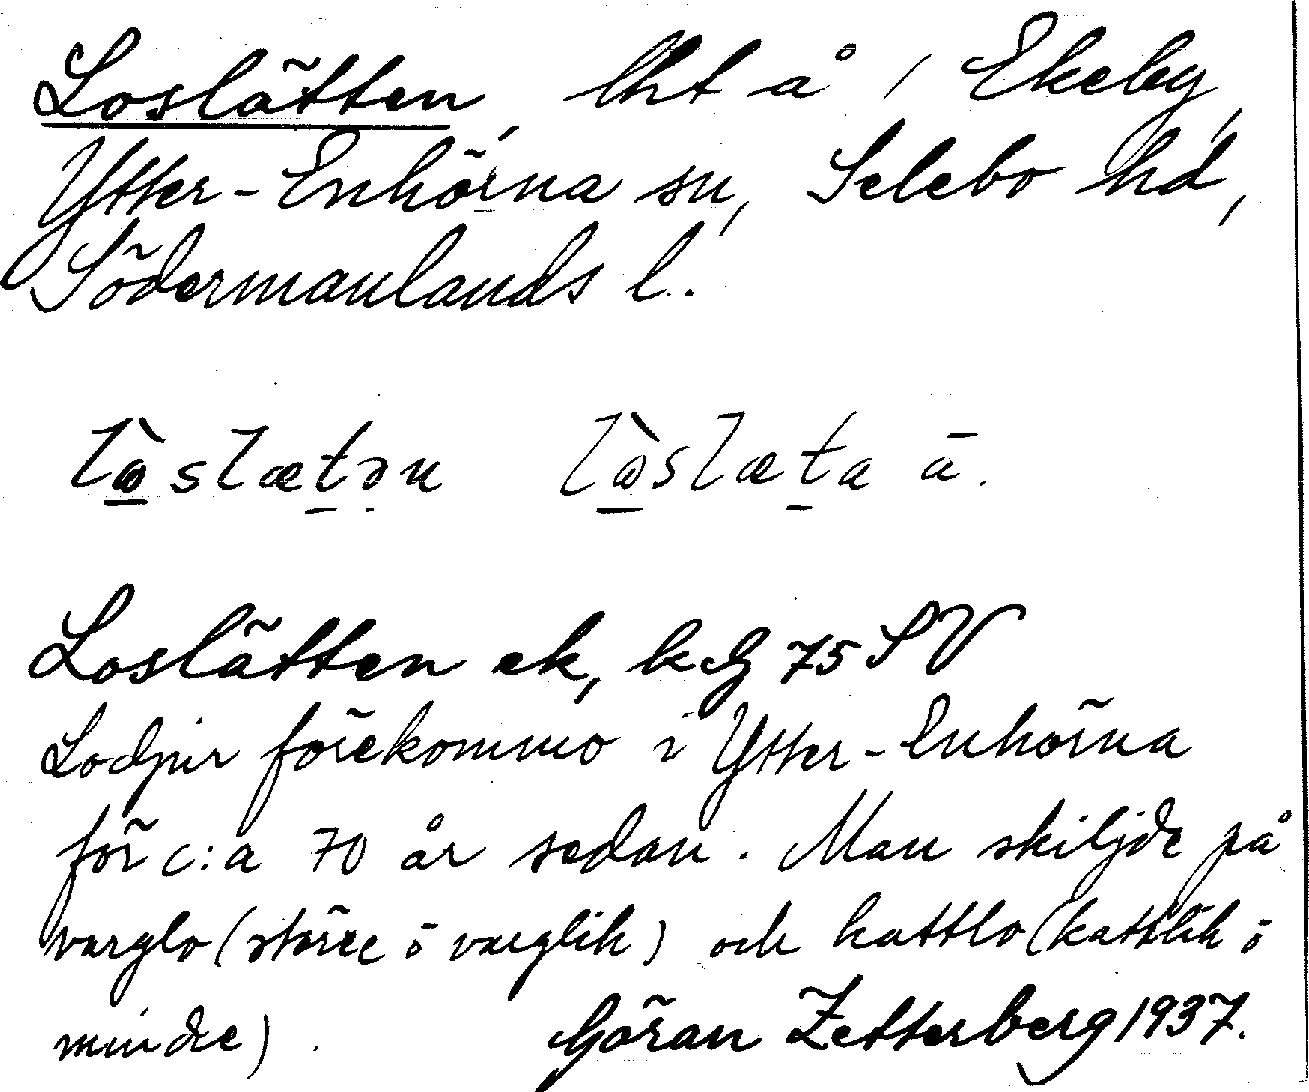 Loslätten, lht å / Ekeby,
Ytter-Enhörna sn, Selebo hd,
Södermanlands l.
lò̱slæt̠ən lò̱slæt̠a ā.
Loslätten ek, bl.g 75 SV
Lodjur förekommo i Ytter-Enhörna
för c:a 70 år sedan. Man skiljde på
varglo (större o varglik) och kattlo (kattlik o
mindre). Göran Zetterberg 1937.